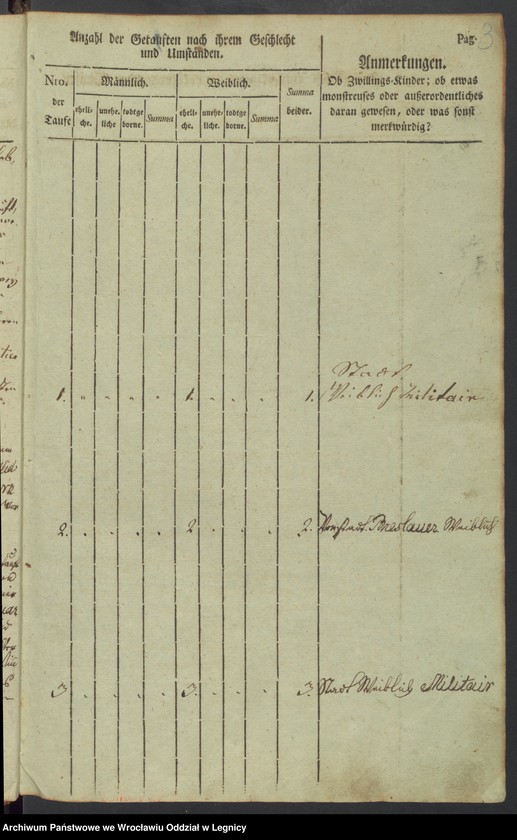 Pag. 3
Anzahl der Getauften nach ihrem Geschlecht
und Umständen.
Anmerkungen.
Ob Zwillings-Kinder; ob etwas
monstreuses oder außerordentliches
daran gewesen, oder was sonst
merkwürdig?
Nro.
der
Taufe
Männlich.
Weiblich.
Summa
beider.
eheli-
che.
unehe-
liche
todtge
borne.
Summa
eheli-
che.
unehe-
liche
todtge
borne.
Summa
Stadt
1. " . . . 1. . . . 1. Weiblich Militair
2. . . . . 2 . . . 2. Vorstadt. Breslauer Weiblich
3 . . . . 3. . . . 3. Stadt Weiblich Militair
Archiwum Państwowe we Wrocławiu Oddział w Legnicy